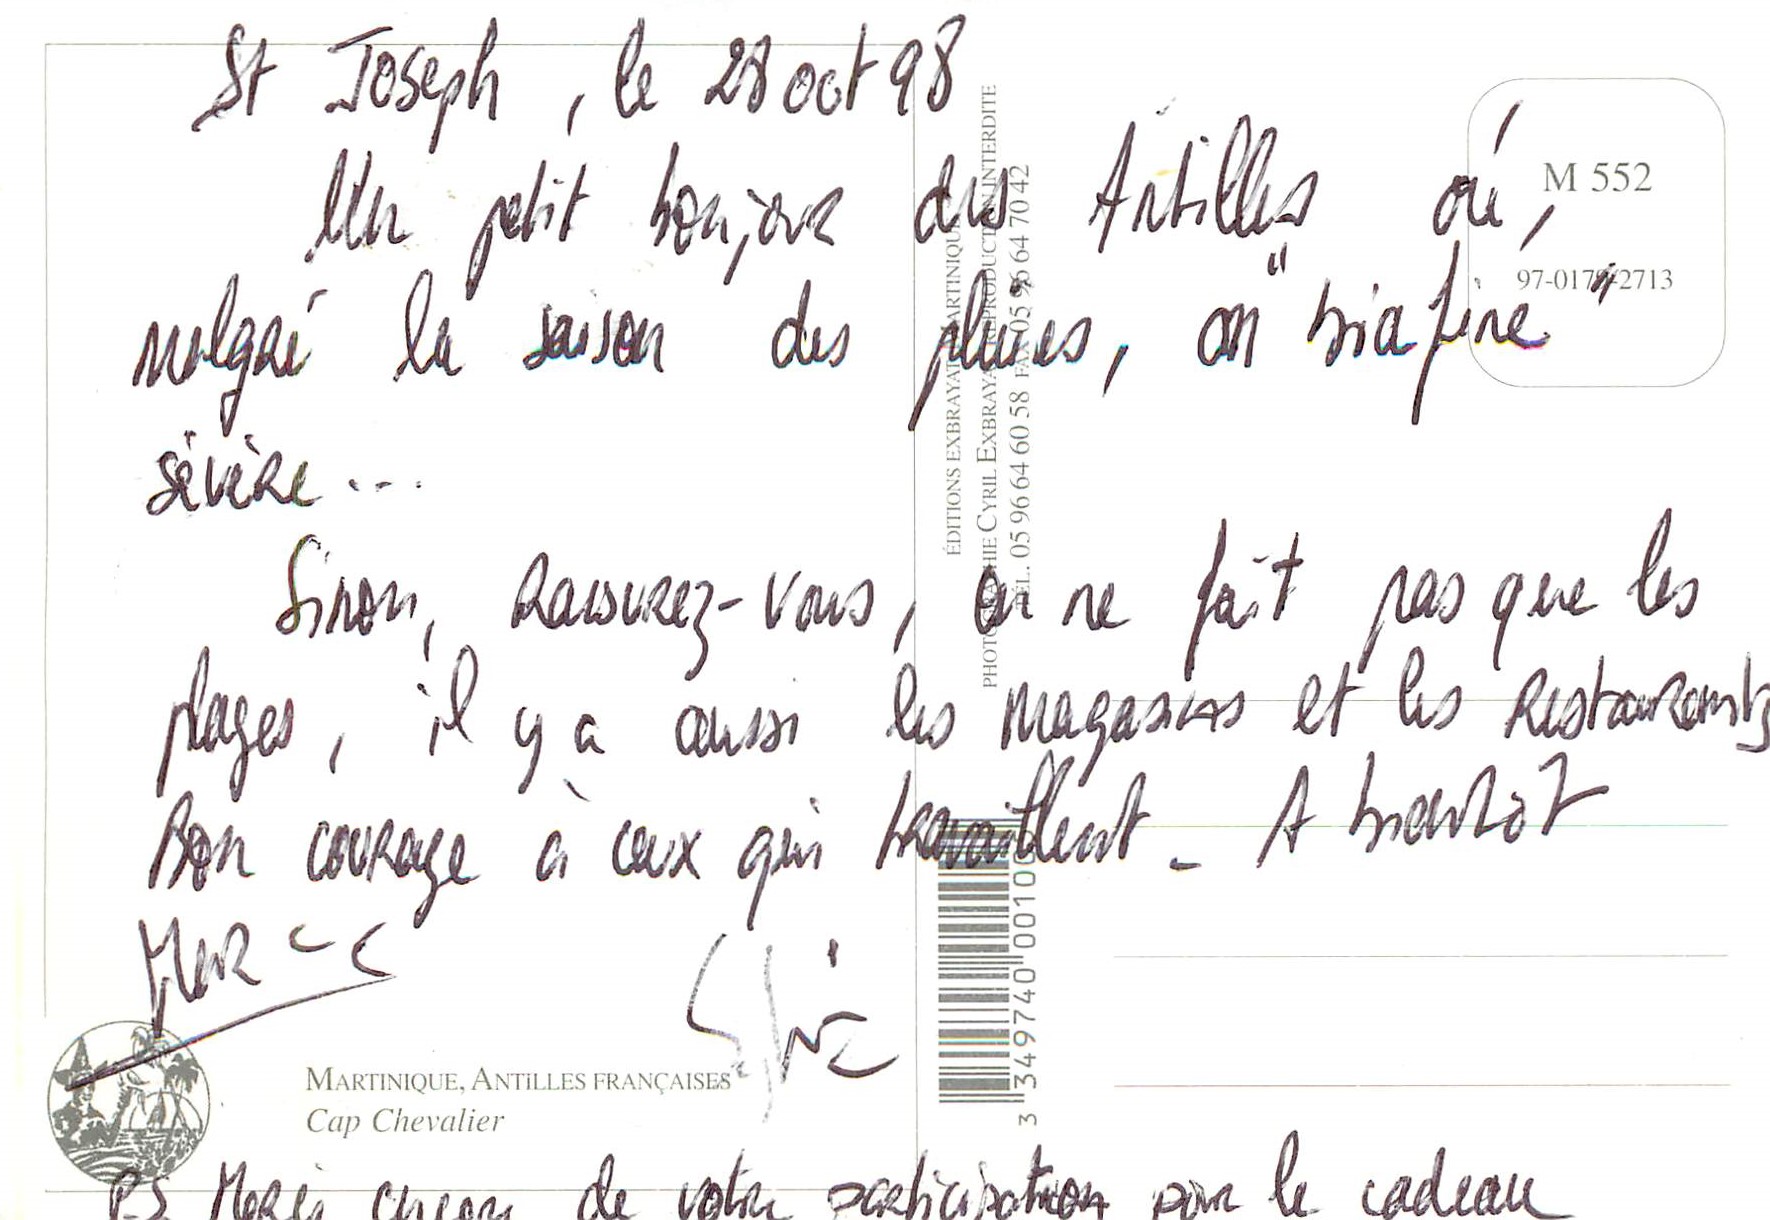 St Joseph, le 28 oct 98
Un petit bonjour des Antilles où,
malgré la saison des pluies, on "biafine"
sévère...
Sinon, Rassurez-vous, on ne fait pas que les
plages, il y a aussi les magasins et les Restaurants
Bon courage à ceux qui travaillent - A bientôt
Sylvie
P.S Merci encore de votre participation pour le cadeau
M 552
97-0179-2713
ÉDITIONS EXBRAYAT MARTINIQUE
PHOTOGRAPHIE CYRIL EXBRAYAT REPRODUCTION INTERDITE
TÉL. 05 96 64 60 58 FAX 05 96 64 70 42
3 349740 00110
MARTINIQUE, ANTILLES FRANÇAISES
Cap Chevalier